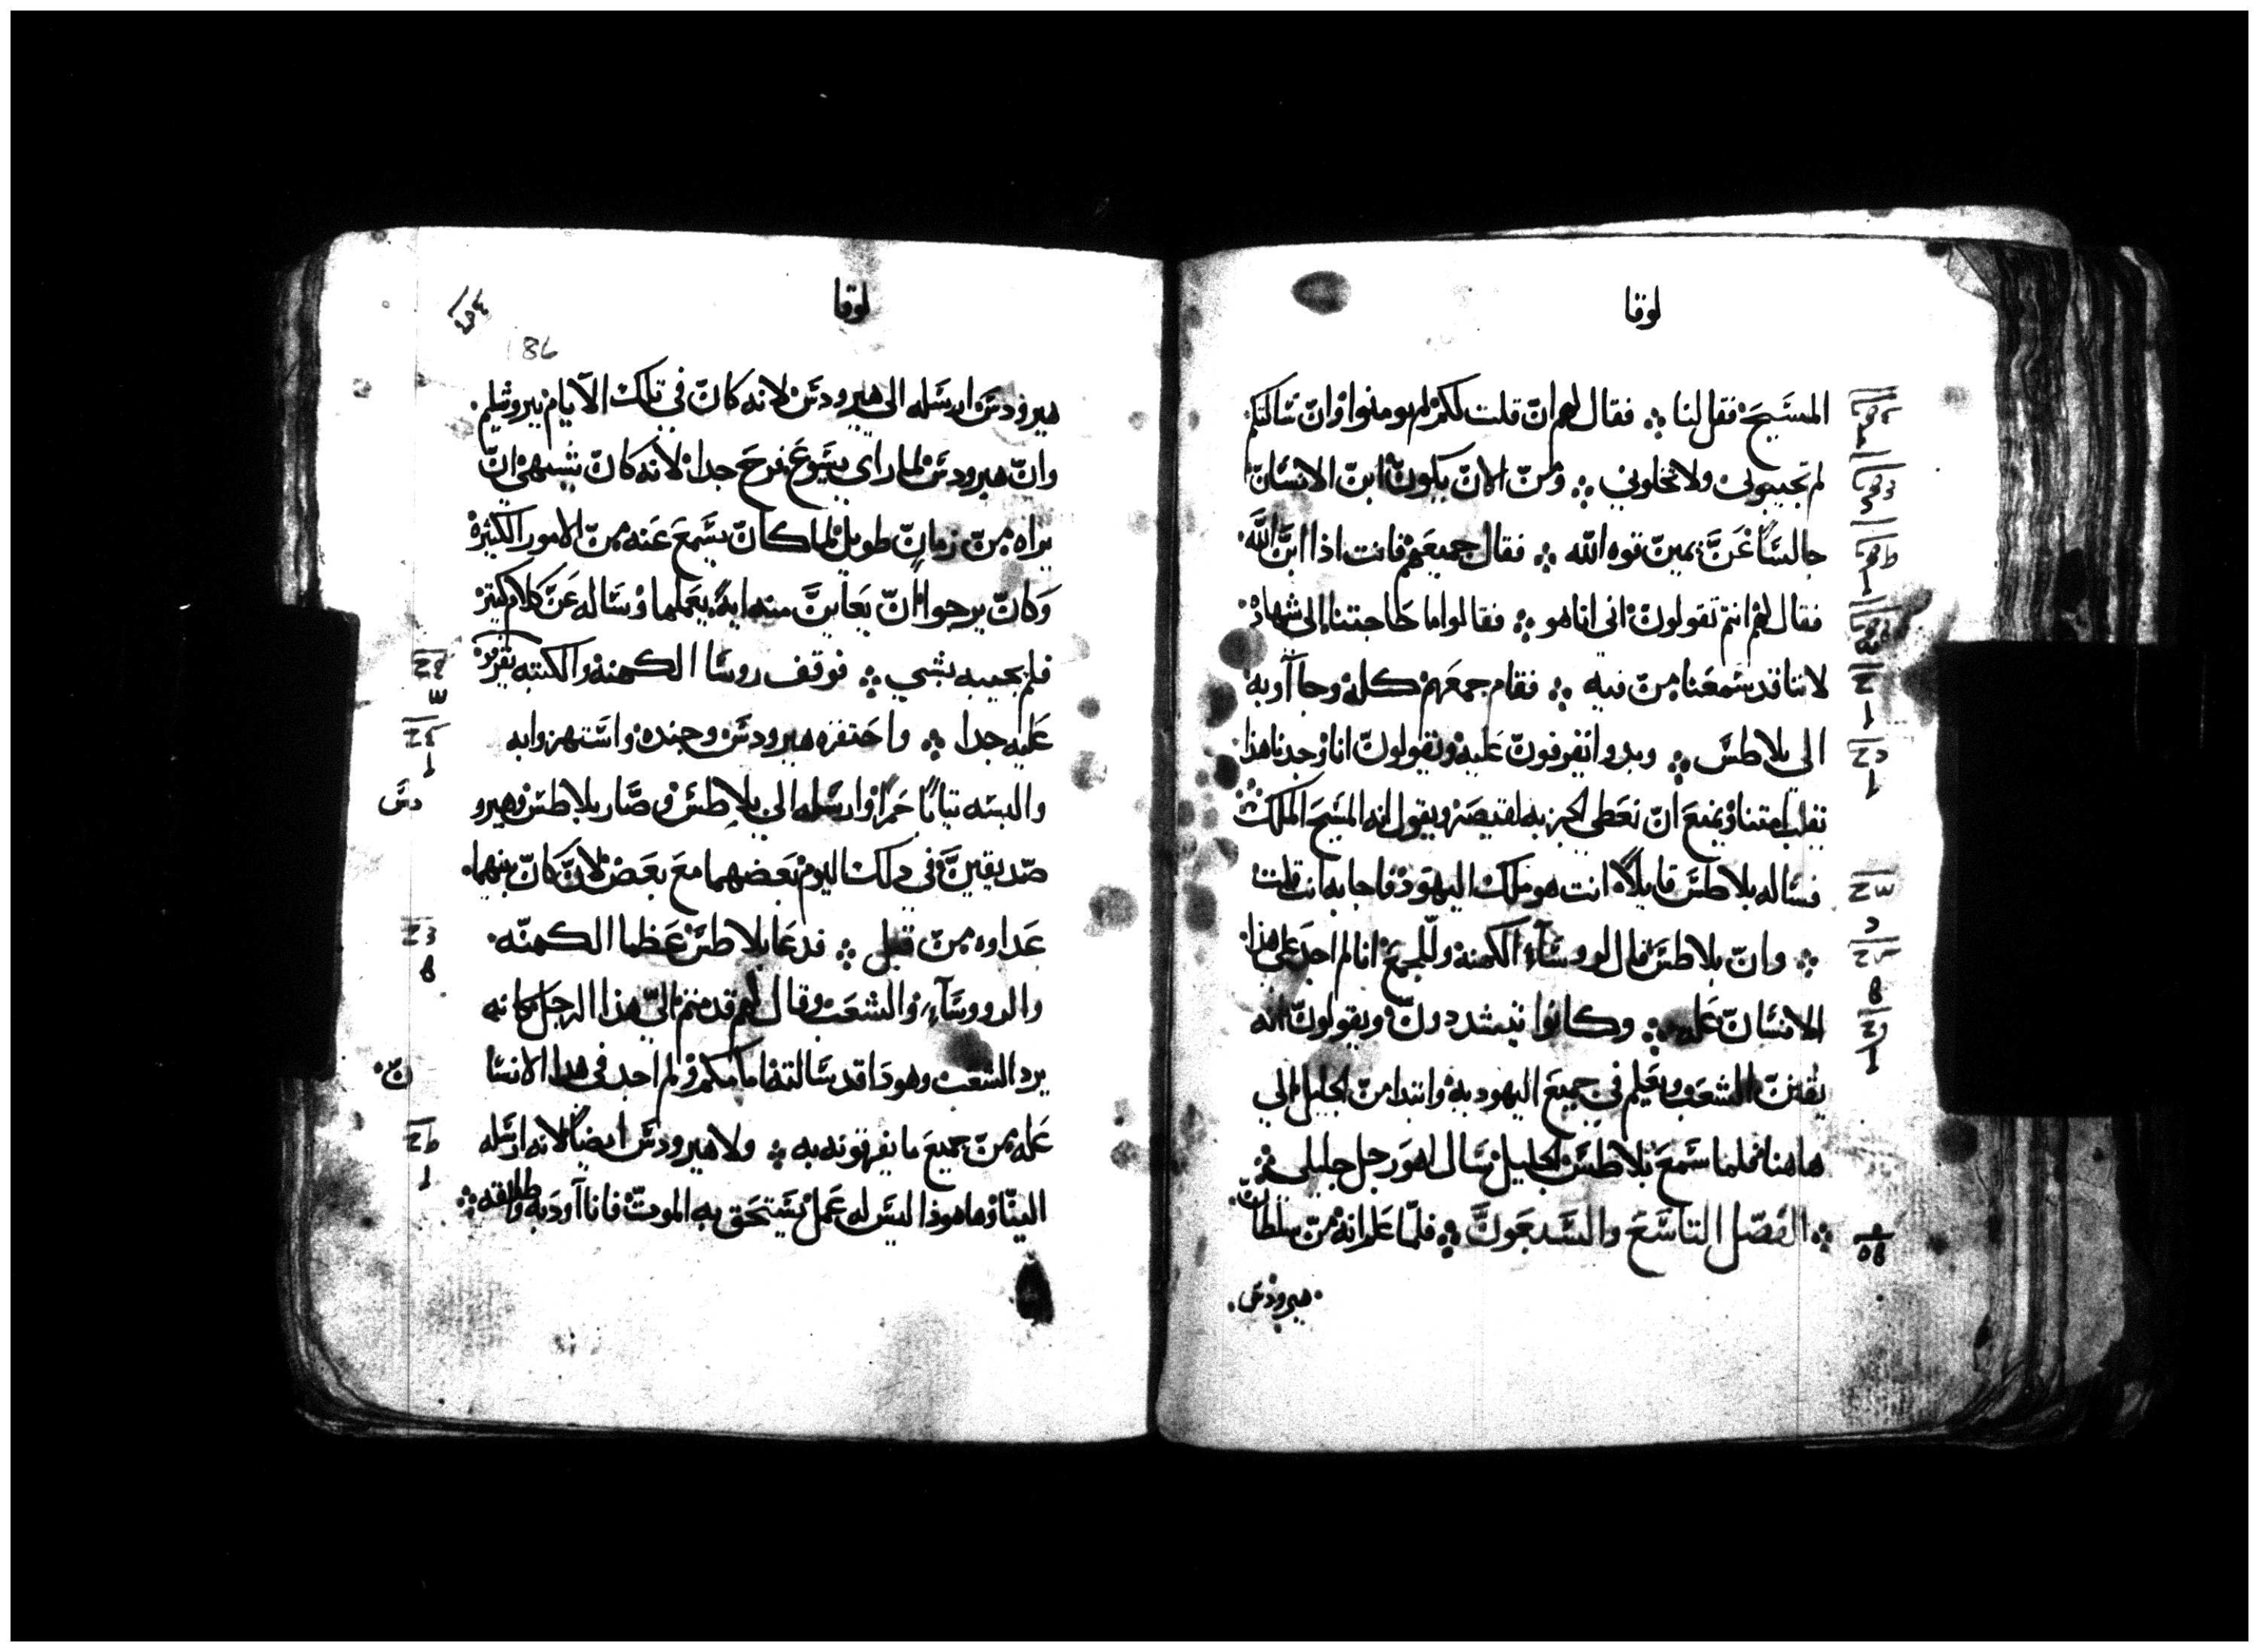 لوقا
المسيح فقل لنا ۞ فقال لهم ان قلت لكم لم تومنوا وان سالتكم
لم تجيبوني ولا تخلوني ۞ ومن الان يكون ابن الانسان
جالسًا عن يمين قوه الله ۞ فقال جميعهم فانت اذا ابن الله
فقال لهم انتم تقولون اني انا هو ۞ فقالوا ما حاجتنا الى شهاده
لاننا قد سمعنا من فيه ۞ فقام جمعهم كله وجآ آو به
الى بلاطس ۞ وبدوا يقرفون عليه ويقولون انا وجدنا هذا
يقلب امتنا ويمنع ان نعطى الجزيه لقيصر ويقول انه المسيح الملك
فساله بلاطس قايلاً انت هو ملك اليهود فاجابه انت قلت
۞ وان بلاطس قال لرووسآء الكهنه وللجمع انا لم اجد على هذا
الانسان عله ۞ وكانوا يتشددون ويقولون انه
يفتن الشعب ويعلم في جميع اليهوديه وابتدا من الجليل الي
هاهنا فلما سمع بلاطس الجليل سال اهو رجل جليلي
۞ الفصل التاسع والسبعون ۞ فلما علم انه من سلطان
هيرودس
لوقا
186
هيرودس ارسله الى هيرودس لانه كان في تلك الايام بيروشليم
وان هيرودس لما راي يسوع فرح جدا لانه كان يشتهي ان
يراه من زمان طويل لما كان يسمع عنه من الامور الكثيره
وكان يرجوا ان يعاين منه ايه يعملها وساله عن كلام كثير
فلم يجيبه بشي ۞ فوقف روسا الكهنه والكتبه يقرفو
عليه جدا ۞ واحتقره هيرودس وجنده واستهزوا به
والبسه ثيابًا حمرًا وارسله الى بلاطس وصار بلاطس وهيرو
دس
صديقين في دلك اليوم بعضهما مع بعض لان كان بينهما
عداوه من قبل ۞ فدعا بلاطس عظما الكهنه
والرووسآء والشعب وقال لهم قدمتم الي هذا الرجل كانه
يرد الشعب وهودا قد سالته امامكم ولم اجد في هدا الانسا
ن
عله من جميع ما يقرفونه به ۞ ولا هيرودس ايضًا لانه ارسله
الينا وها هوذا ليس له عمل يستحق به الموت فانا آودبه واطلقه ۞